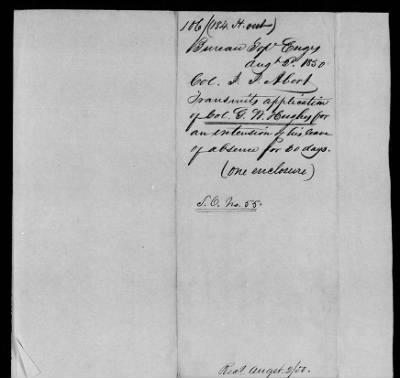 186 (184. H. out)
Bureau Topl Engrs
Augt 2d. 1850.
Col. J. J. Abert
Transmits application
of Col. G. W. Hughes for
an extension of his leave
of absence for 60 days.
(one enclosure)
S.O. No. 55.
Recd. Augst. 2/50.